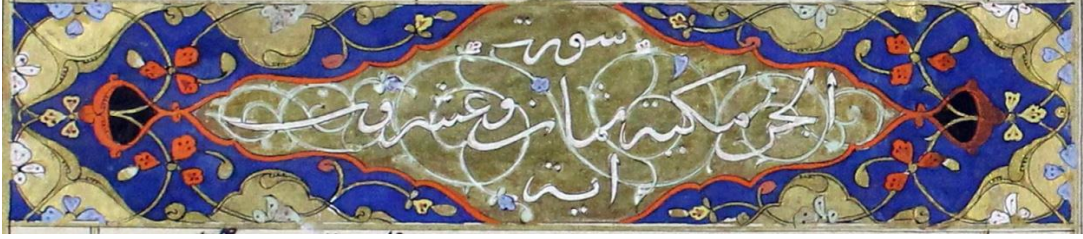 سورة
الجن مكية ثمان وعشرون
اية